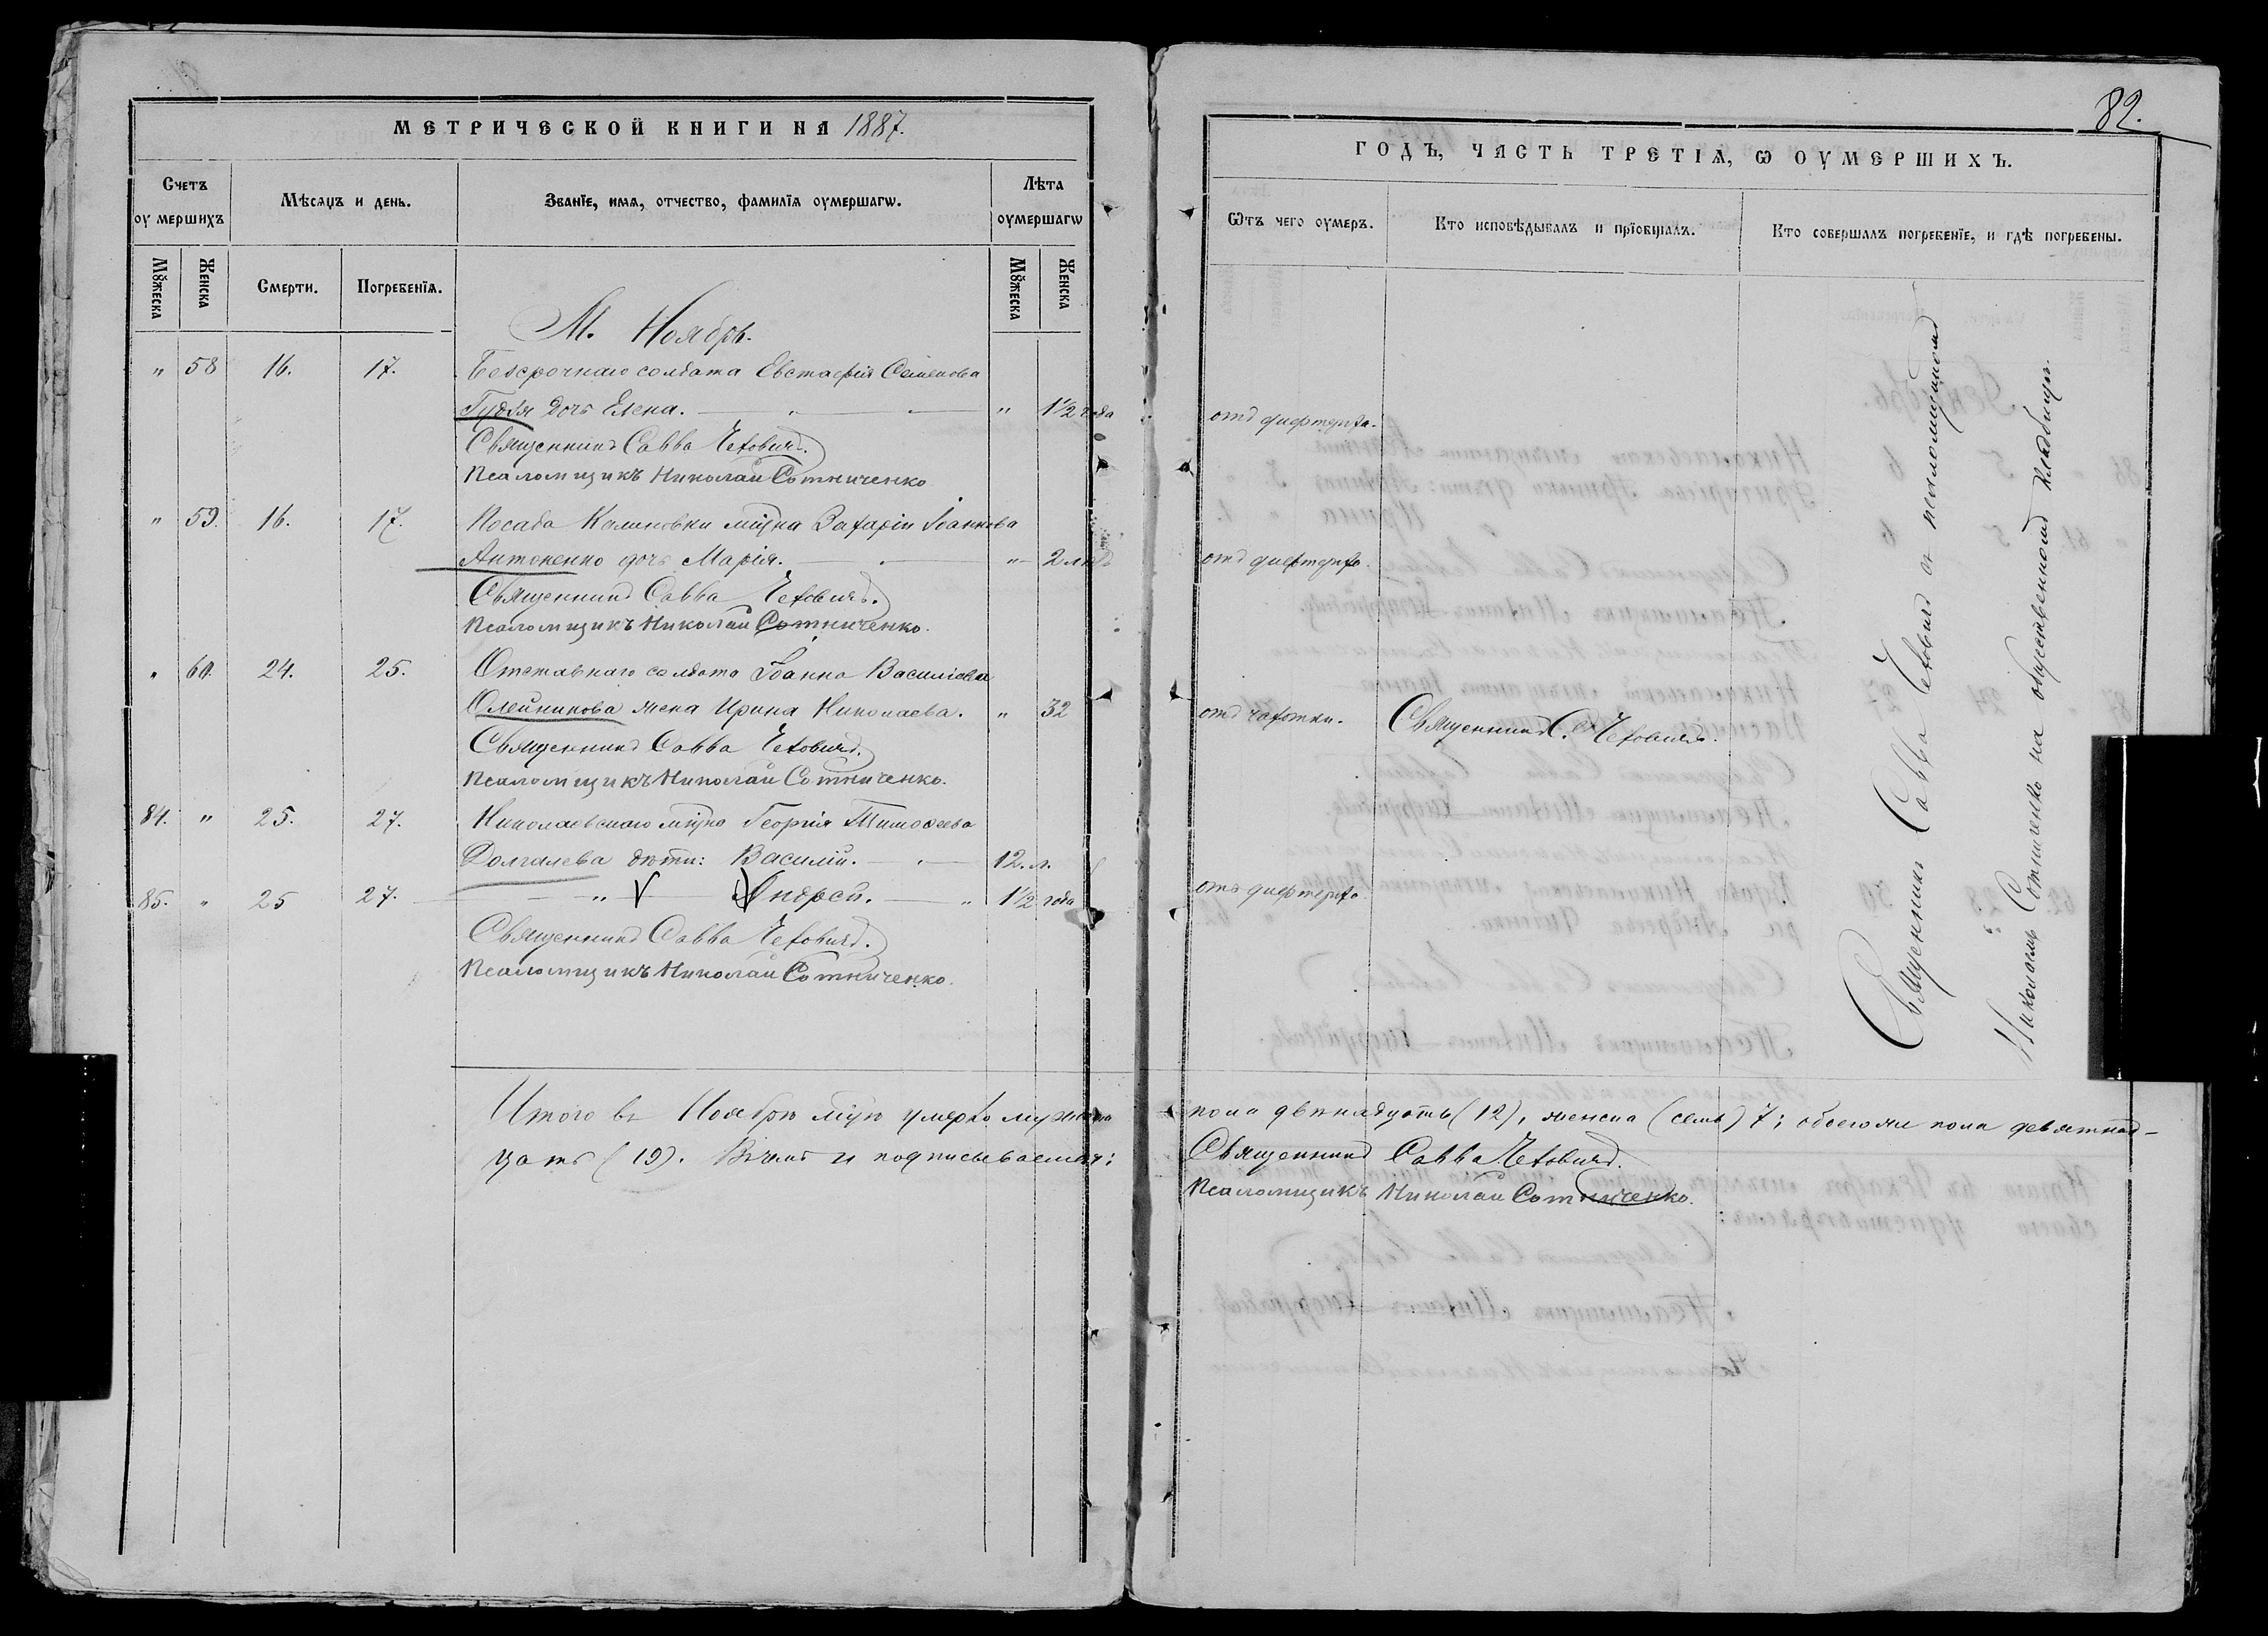 МЕТРИЧЕСКОЙ КНИГИ НА 1887.
Счетъ оумершихъ
Мѣсяцъ и день.
Званїе, имя, отчество, фамилїя оумершагѡ.
Лѣта оумершагѡ
Мꙋжеска
Женска
Смерти.
Погребенїя.
Мꙋжеска
Женска
М. Ноябрь.
" 58 16. 17. Безсрочнаго солдата Евстафія Семенова
Гудзя дочь Елена. " 1½ года
Священникъ Савва Чеховичъ.
Псаломщикъ Николай Сотниченко
" 59. 16. 17. Посада Калиновки мѣщ̃на Захаріи Іоаннова
Антоненко дочь Марія. " 2 лѣтъ
Священникъ Савва Чеховичъ.
Псаломщикъ Николай Сотниченко.
" 60. 24. 25. Отставнаго солдата Іоанна Василіева
Олейникова жена Ирина Николаева. " 32
Священникъ Савва Чеховичъ.
Псаломщикъ Николай Сотниченко.
84. " 25. 27. Николаевскаго мѣщ̃на Георгія Тимоѳеева
Долгалева дѣти: Василій. 12. л.
85. " 25 27. " Андрей. " 1½ года
Священникъ Савва Чеховичъ.
Псаломщикъ Николай Сотниченко.
Итого въ Ноябрѣ мц̃ѣ умерло мужеска
цать (19). Въ чемъ и подписываемся:
82.
ГОДЪ, ЧАСТЬ ТРЕТІѦ, Ѡ ОУМЕРШИХЪ.
Ѿтъ чего оумеръ.
Кто исповѣдывалъ и прїобщалъ.
Кто совершалъ погребенїе, и гдѣ погребены.
отъ дифтерита.
отъ дифтерита.
отъ чахотки. Священникъ С. Чеховичъ.
отъ дифтерита
Священникъ Савва Чеховичъ съ псаломщикомъ
Николаемъ Сотниченко на общественномъ кладбищѣ.
пола двѣнадцать (12), женска (семь) 7; обоего же пола девятнад-
Священникъ Савва Чеховичъ.
Псаломщикъ Николай Сотниченко.